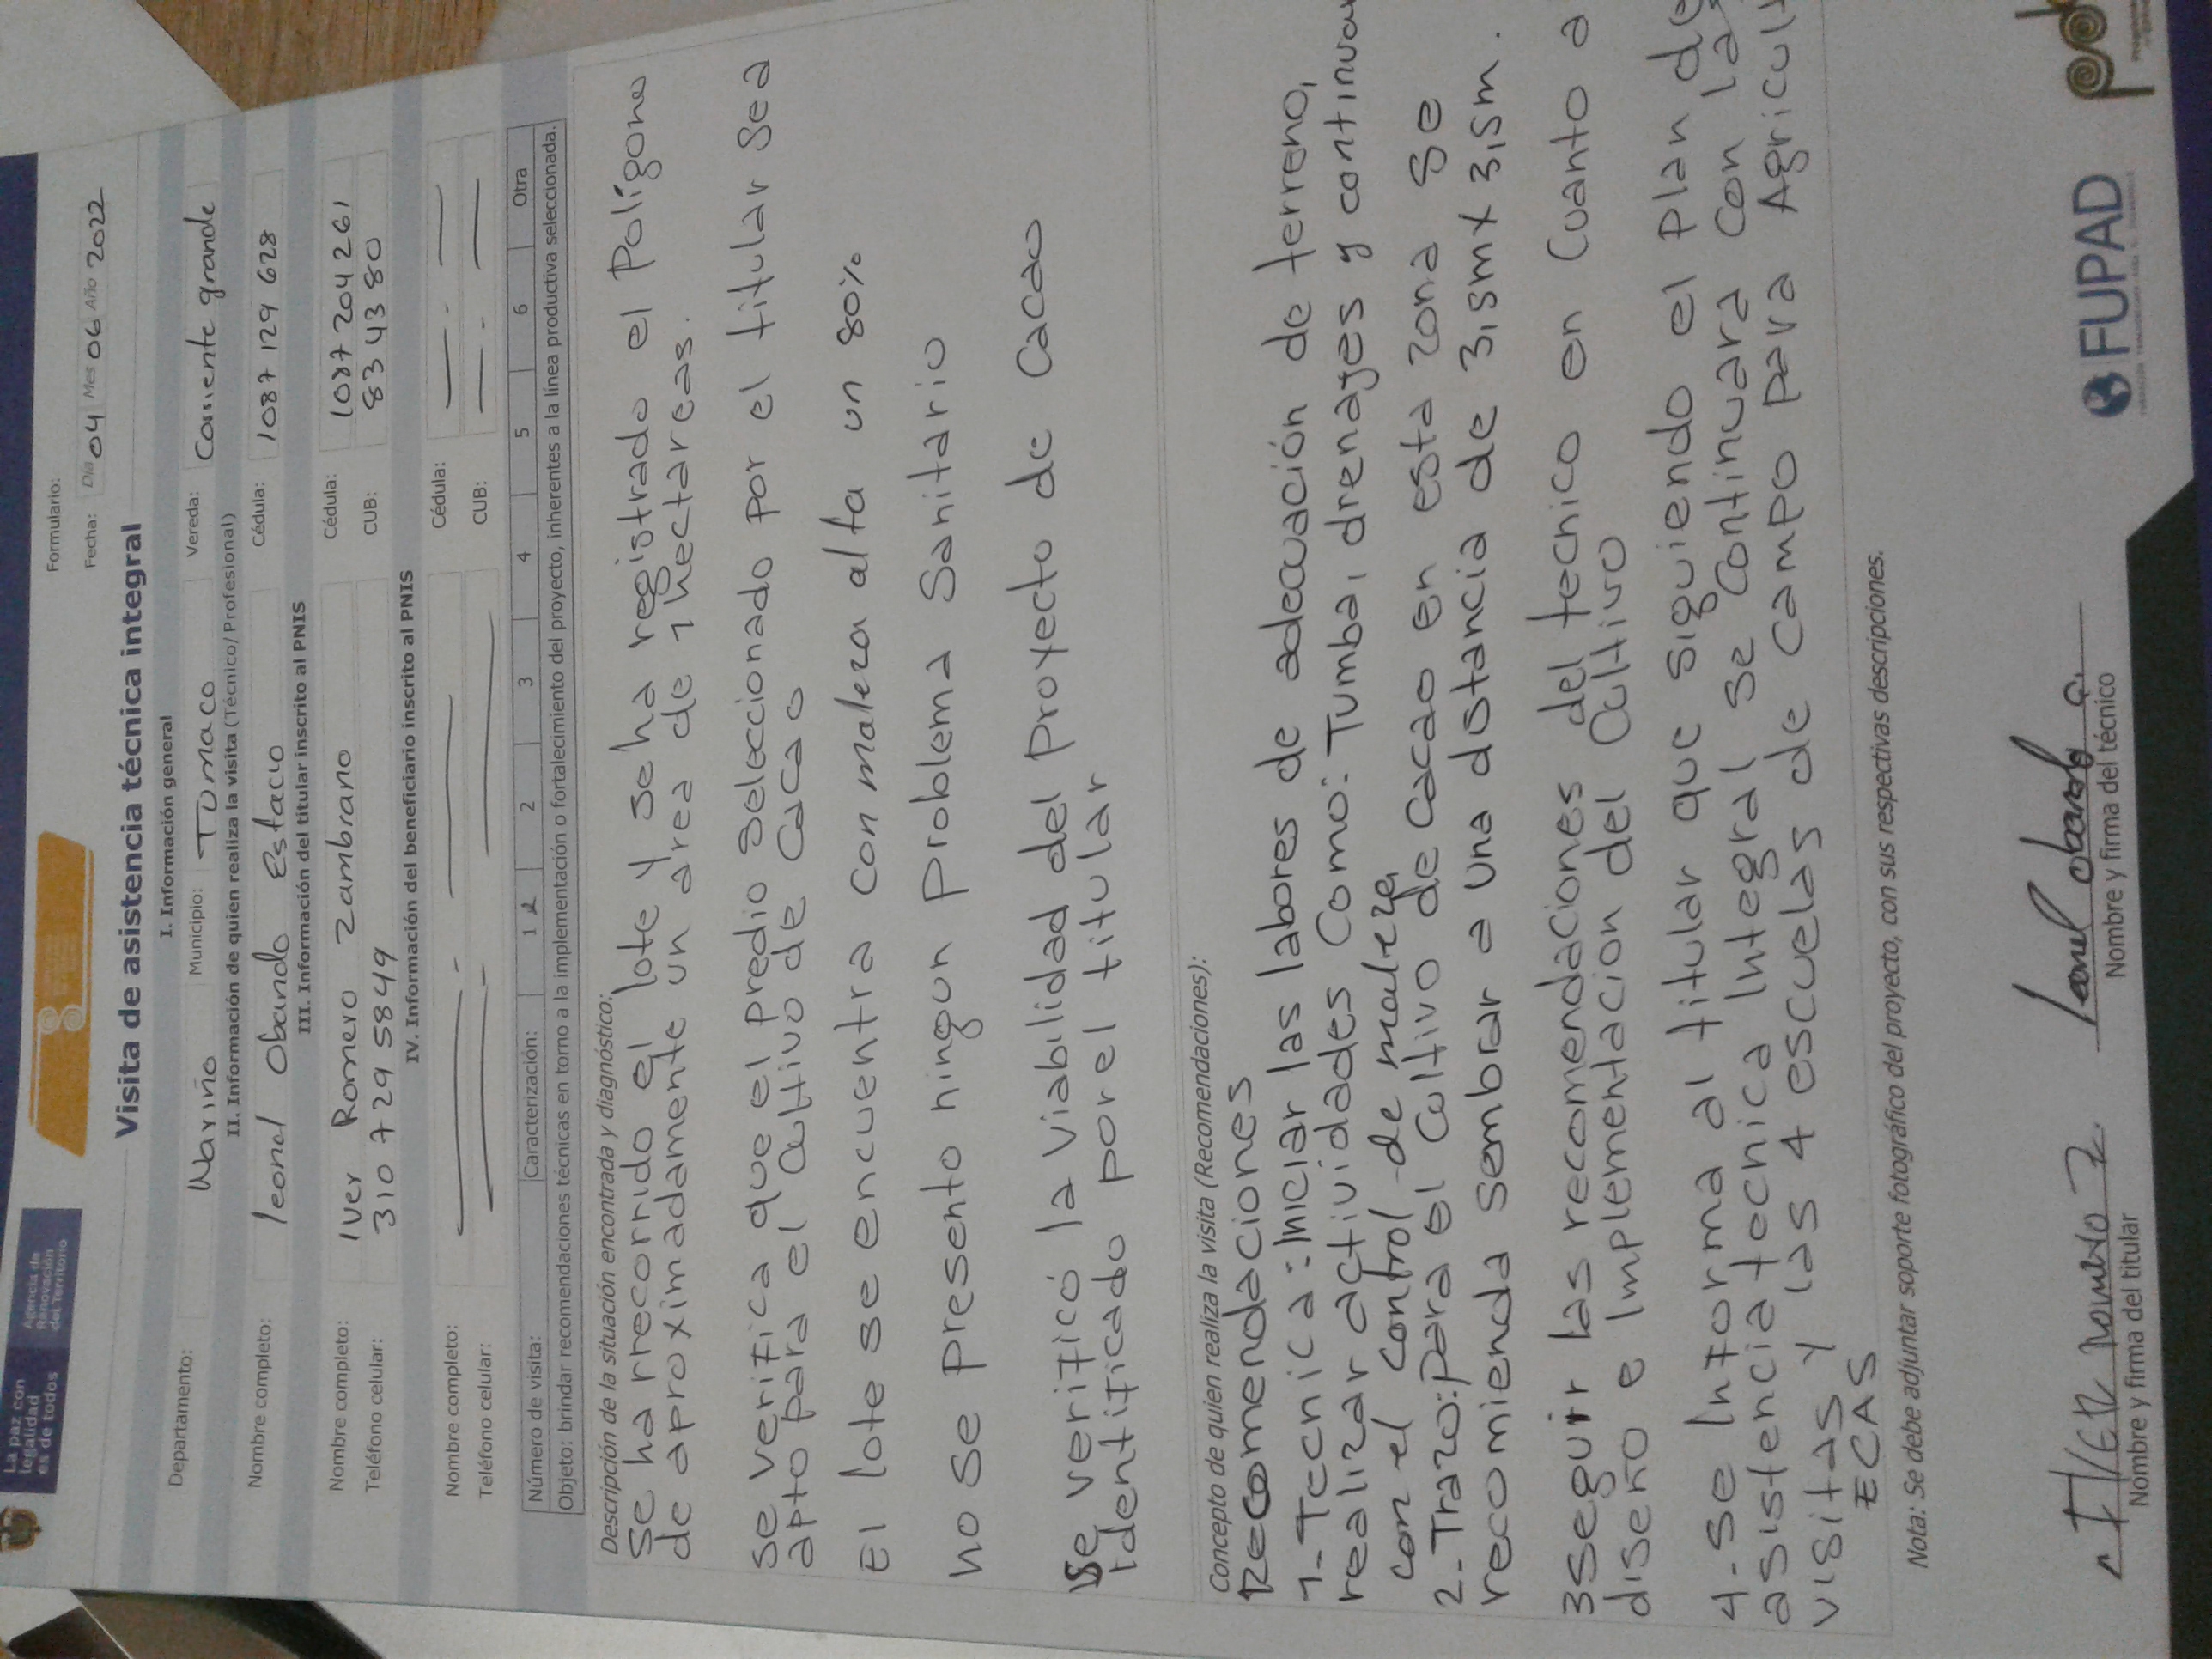 La paz con
legalidad
es de todos
Agencia de
Renovación
del Territorio
Formulario:
Fecha: Día 04 Mes 06 Año 2022
Visita de asistencia técnica integral
I. Información general
Departamento: Nariño Municipio: Tumaco Vereda: Corriente grande
II. Información de quien realiza la visita (Técnico/Profesional)
Nombre completo: leonel Obando Estacio Cédula: 1087 129 628
III. Información del titular inscrito al PNIS
Nombre completo: Iver Romero Zambrano Cédula: 1087 204 261
Teléfono celular: 310 729 5849 CUB: 8343380
IV. Información del beneficiario inscrito al PNIS
Nombre completo: Cédula:
Teléfono celular: CUB:
Número de visita: Caracterización: 1 2 3 4 5 6 Otra
Objeto: brindar recomendaciones técnicas en torno a la implementación o fortalecimiento del proyecto, inherentes a la línea productiva seleccionada.
Descripción de la situación encontrada y diagnóstico:
Se ha rrecorrido el lote y se ha registrado el Polígono
de aproximadamente un área de 1 hectareas.
se verifica que el predio seleccionado por el titular sea
apto para el cultivo de Cacao
El lote se encuentra con maleza alta un 80%
no se presento ningun problema Sanitario
Se verificó la viabilidad del Proyecto de Cacao
identificado por el titular
Concepto de quien realiza la visita (Recomendaciones):
Recomendaciones
1- Tecnica: Iniciar las labores de adecuación de terreno,
realizar actividades Como: Tumba, drenajes y continuar
con el control de maleza
2- Trazo: para el cultivo de cacao en esta zona se
recomienda sembrar a una distancia de 3,5m x 3,5m.
3 seguir las recomendaciones del tecnico en Cuanto a
diseño e implementacion del Cultivo
4- se Informa al titular que siguiendo el Plan de
asistencia tecnica Integral se Continuara con las
visitas y las 4 escuelas de campo para Agricult
ECAS
Nota: Se debe adjuntar soporte fotográfico del proyecto, con sus respectivas descripciones.
IVER Romero Z.
Nombre y firma del titular
Leonel obando e.
Nombre y firma del técnico
FUPAD